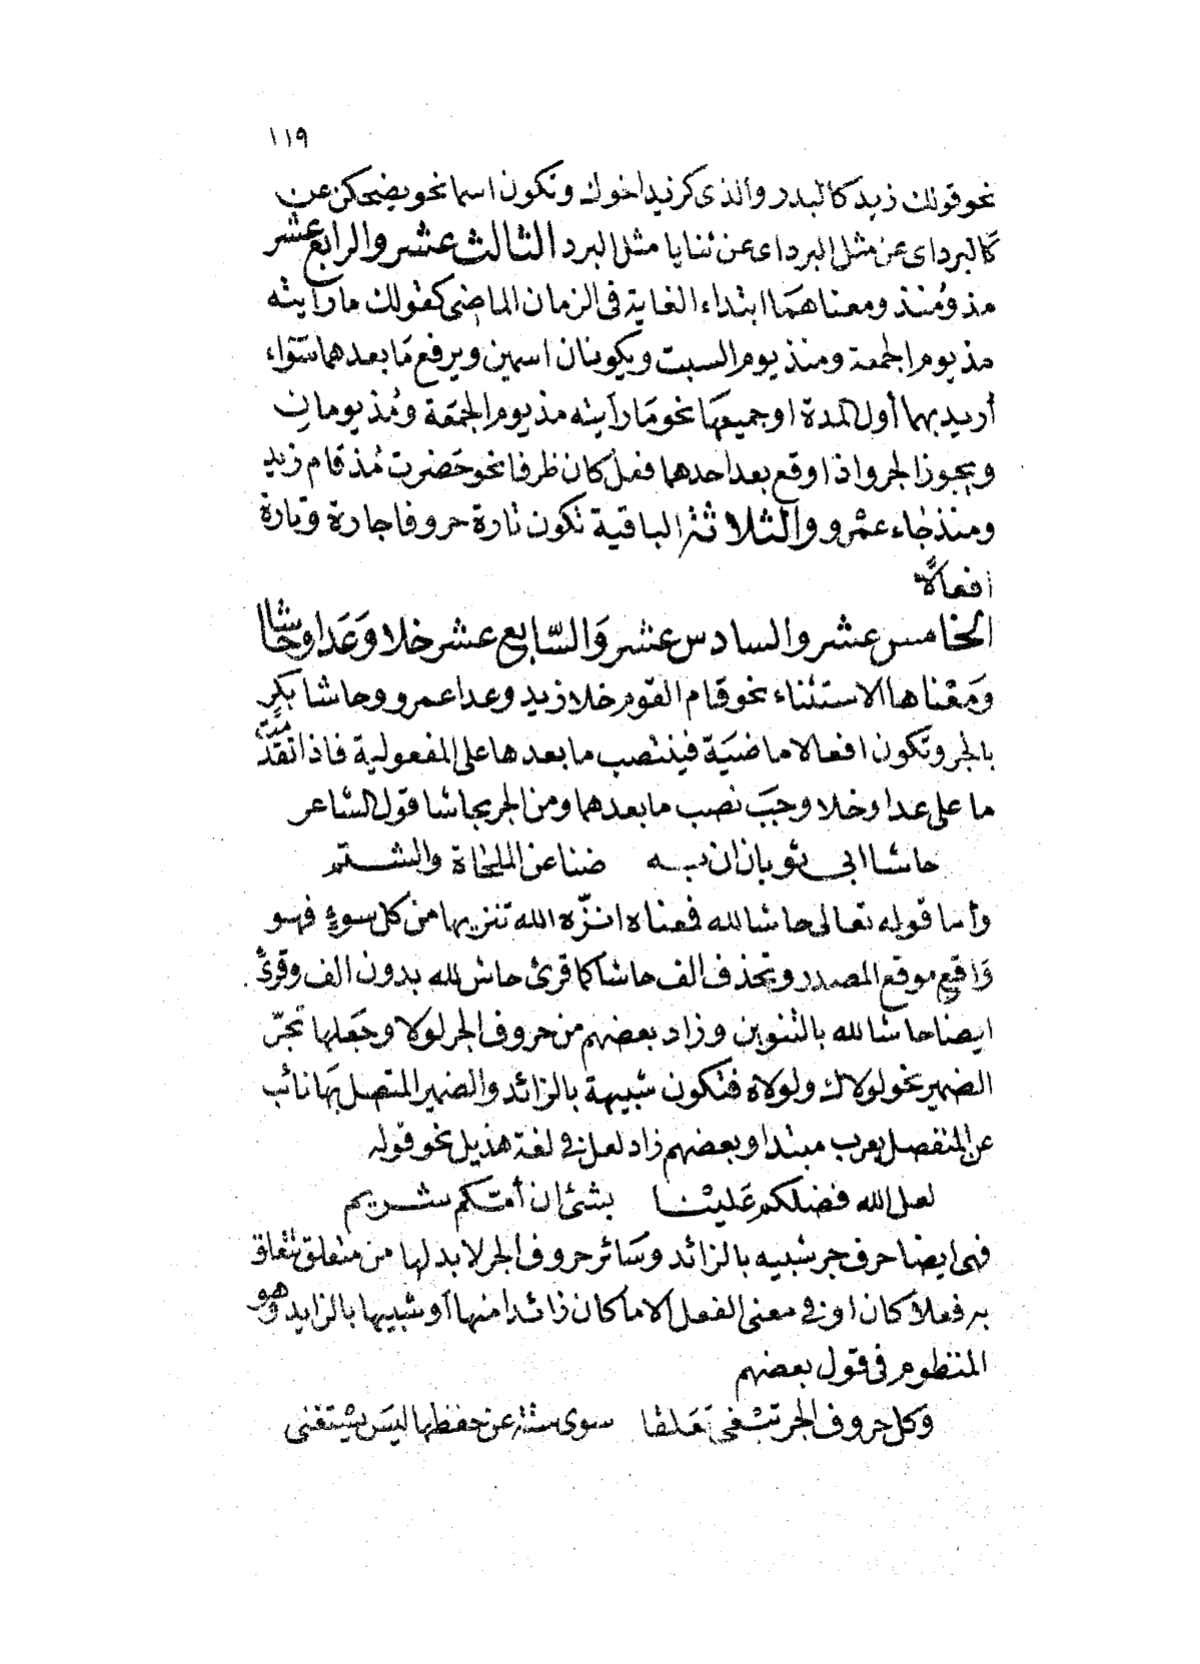 ١١٩
نحو قولك زيد كالبدر والذي كزيد اخوك وتكون اسما نحو يضحكن عن
كَالبرد اى عن مثل البرد اى عن ثنايا مثل البرد الثالث عشر والرابع عشر
مذ ومُنذ ومعناهمَا ابتداء الغاية فى الزمان الماضى كقولك ما رأيته
مذ يوم الجمعة ومنذ يوم السبت ويكونان اسمين ويرفع مَا بعدهما سَوَاء
أريد بهما أول المدة او جميعهَا نحو مَا رأيته مذ يوم الجمعَة ومُذ يومان
ويجوز الجر واذا وقع بعد احدهما فعل كان ظرفا نحو حَضرت مُذ قام زيد
ومنذ جَاء عمْرو والثلاثة الباقية تكون تارة حروفا جارة وتارة
افعالاً
الخامس عشر والسادس عشر وَالسّابع عشر خلا وَعَدا وحَاشا
وَمَعْناها الاستثناء نحو قام القوم خلا زيد وعدا عمرو وحاشا بكرٍ
بالجر وتكون افعالا ماضيَة فينتصب ما بعدها على المفعولية فاذا تقدّمت
ما على عدا وخلا وجبَ نصب ما بعدهما ومن الجر بحاشا قول الشاعر
حاشا ابى ثوبان ان به ضنا عن الملحاة والشتم
وأما قوله تعالى حاشا لله فمعناه انزّه الله تنزيها من كل سوءٍ فهو
وَاقع موقع المصدر وتحذف الف حاشا كما قرئ حاش لله بدون الف وقرئ
ايضا حاشا لله بالتنوين وزاد بعضهم من حروف الجر لولا وجَعلها تجرّ
الضمير نحو لولاك ولولاه فتكون شبيهة بالزائد والضمير المتصل بهَا نائب
عن المنفصل يعرب مبتدا وبعضهم زاد لعل فى لغة هذيل نحو قوله
لعل الله فضلكم عَليْنا بشئ ان أمّكم شريم
فهى ايضا حرف جر شبيه بالزائد وسَائر حروف الجر لا بد لها من متعلق تتعلق
به فعلاً كان او فى معنى الفعل الا ما كان زائدا منها أو شبيها بالزايد وهو
المنظوم فى قول بعضهم
وَكل حروف الجر تبْغى تَعَلقا سوى ستة عن حفظها ليسَ يسْتغنى